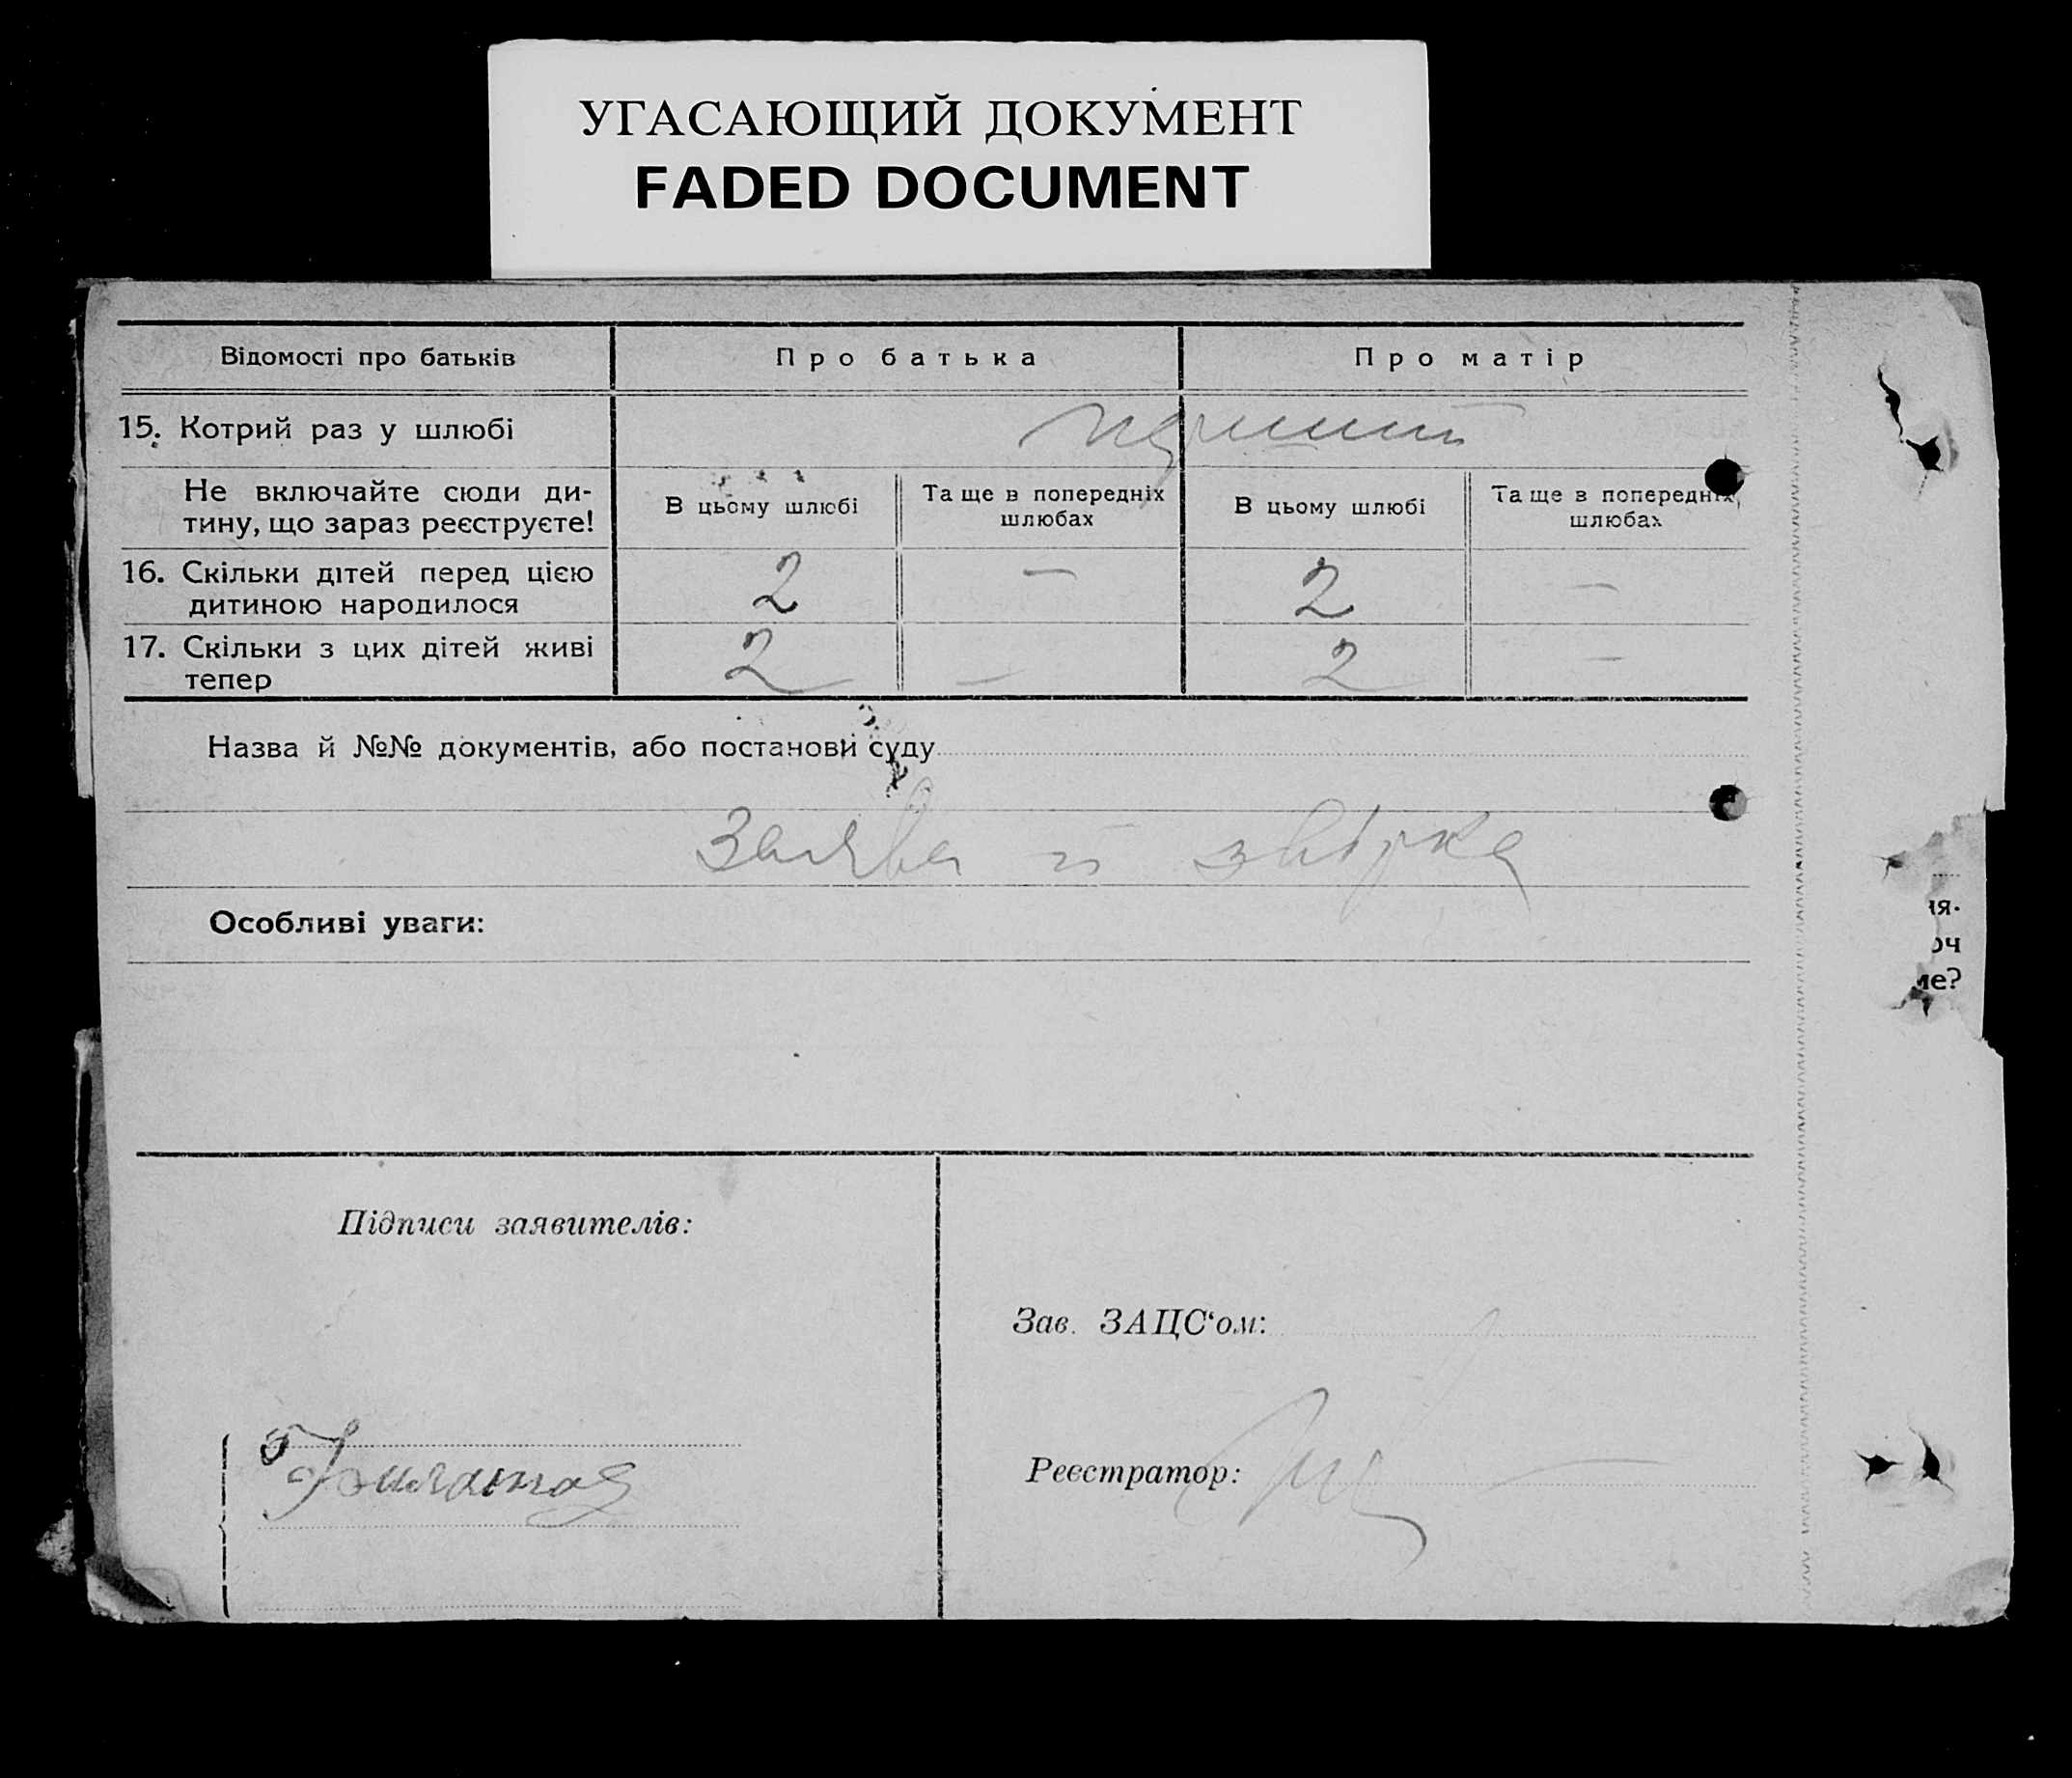 УГАСАЮЩИЙ ДОКУМЕНТ
FADED DOCUMENT
Відомості про батьків
Про батька
Про матір
15. Котрий раз у шлюбі
перший
Не включайте сюди ди-
тину, що зараз реєструєте!
В цьому шлюбі
Та ще в попередніх
шлюбах
В цьому шлюбі
Та ще в попередніх
шлюбах
16. Скільки дітей перед цією
дитиною народилося
2
—
2
—
17. Скільки з цих дітей живі
тепер
2
—
2
—
Назва й №№ документів, або постанови суду
Заява й звірка
Особливі уваги:
ня.
оч
ме?
Підписи заявителів:
Зав. ЗАЦС‘ом:
Реєстратор: